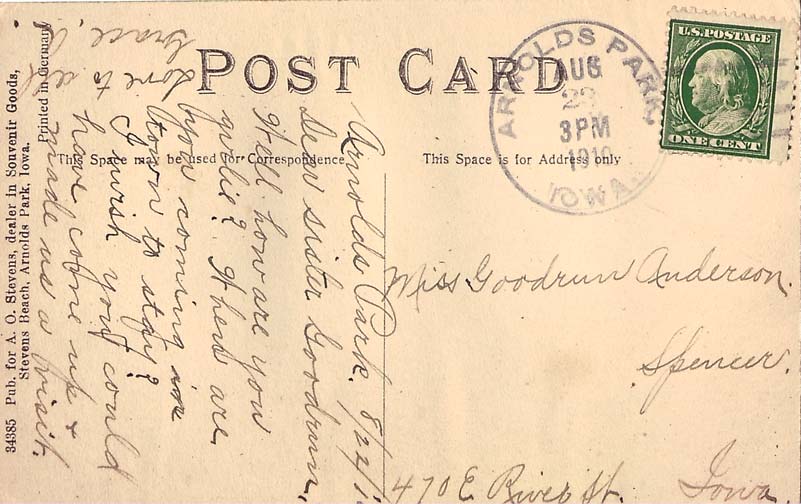 POST CARD
This Space may be used for Correspondence
This Space is for Address only
34385 Pub. for A. O. Stevens, dealer in Souvenir Goods,
Stevens Beach, Arnolds Park, Iowa. Printed in Germany
ARNOLDS PARK,
AUG
23
3 PM
1910
IOWA.
U.S. POSTAGE
ONE CENT
Arnolds Park. 8/22/1
Dear sister Goodrun,
Well how are you
When are
you coming in
town to stay?
I wish you could
have come up &
made us a visit.
Love to all
Grace.
Miss Goodrun Anderson.
Spencer.
470 E River St. Iowa.